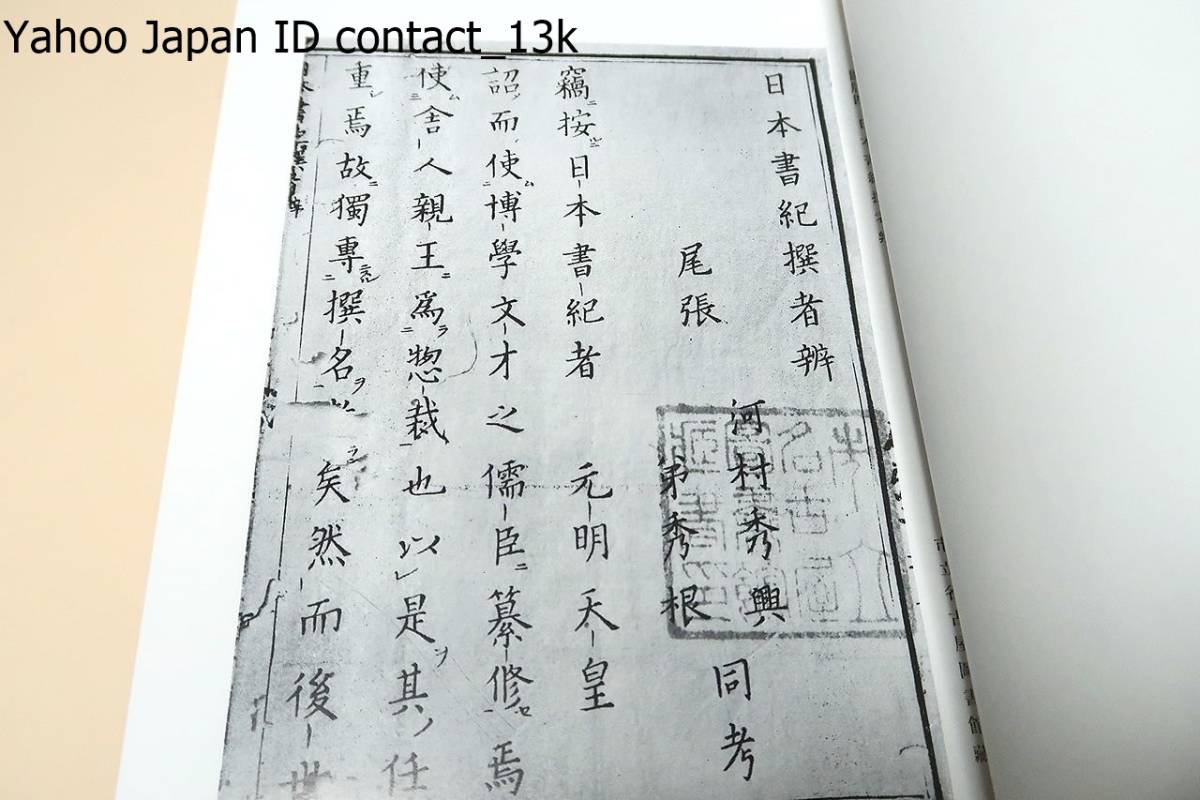 Yahoo Japan ID contact_13k
日本書紀撰者辨
尾張
河村秀興
弟秀根
同考
竊按日本書紀者 元明天皇
詔而使博學文才之儒臣纂修焉
使舍人親王為惣裁也以是其任
重焉故獨專撰名
矣然而後世